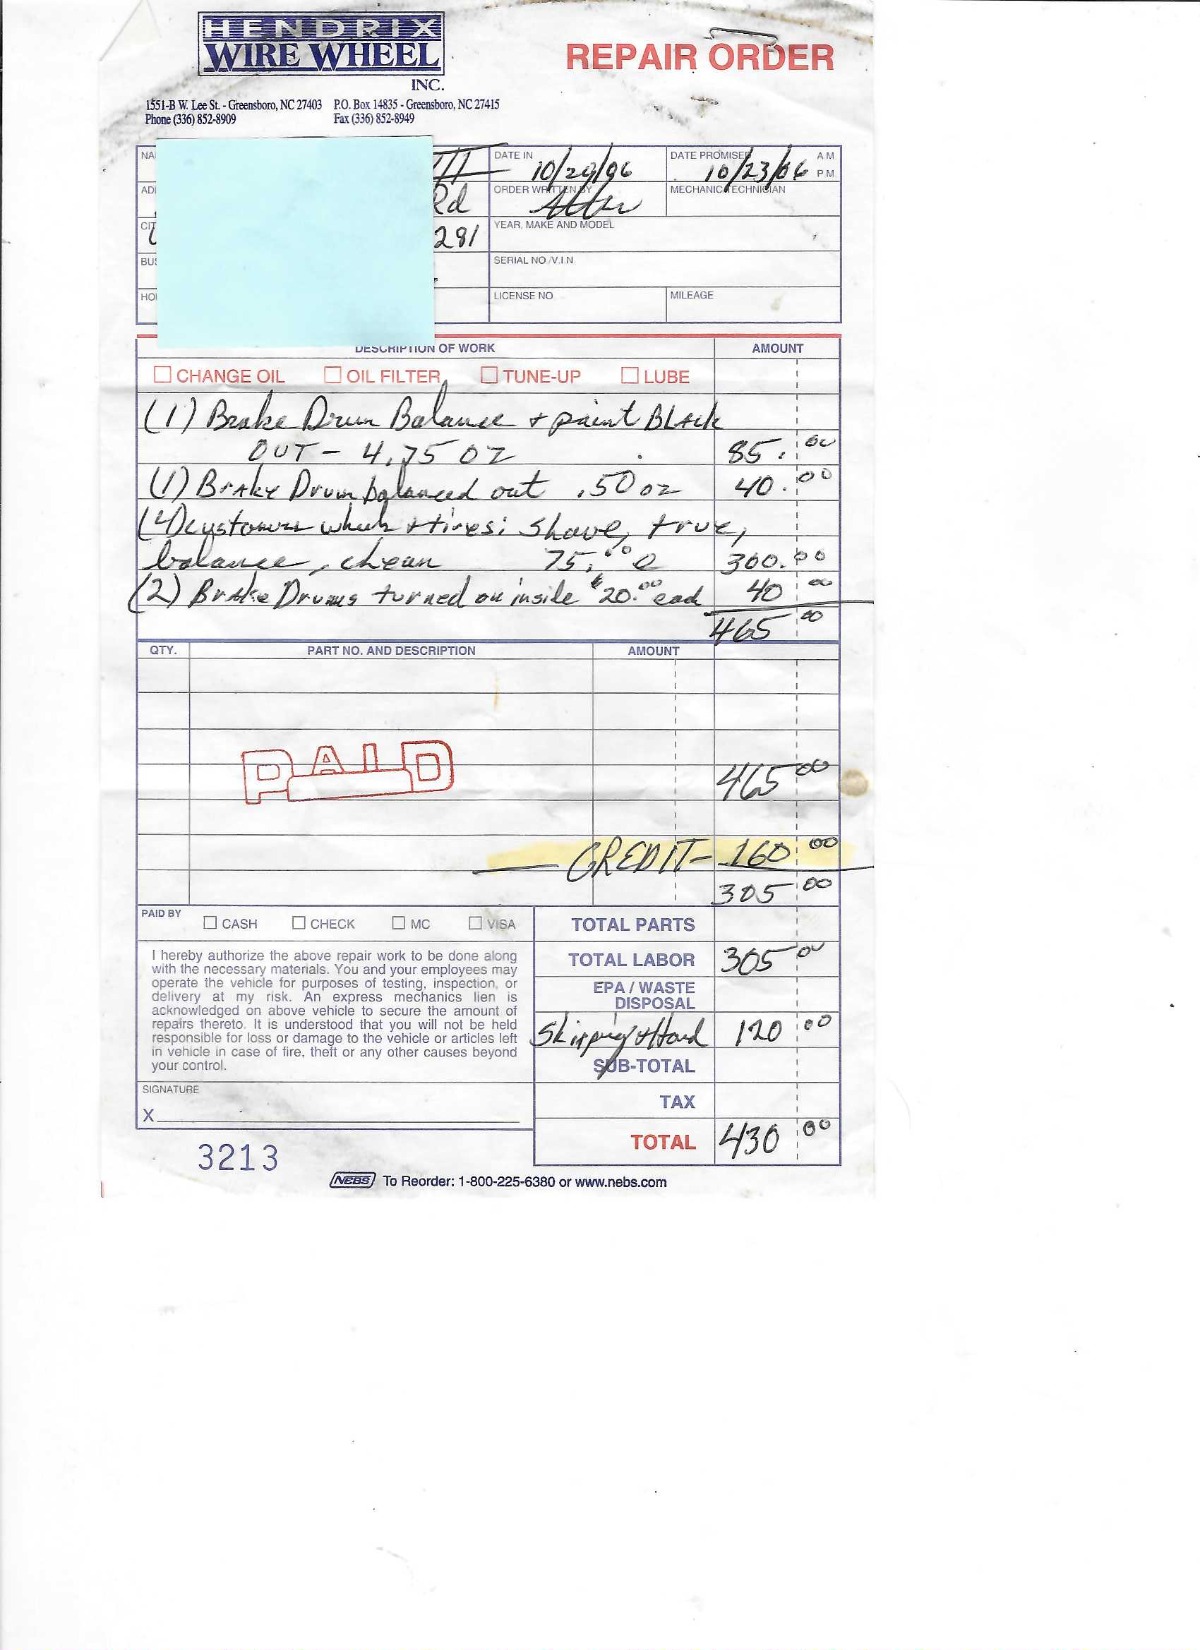 HENDRIX
WIRE WHEEL
INC.
REPAIR ORDER
1551-B W. Lee St. - Greensboro, NC 27403 P.O. Box 14835 - Greensboro, NC 27415
Phone (336) 852-8909 Fax (336) 852-8949
NA III DATE IN 10/20/06 DATE PROMISED 10/23/06 AM PM
AD Rd ORDER WRITTEN BY MECHANIC/TECHNICIAN
CIT 281 YEAR, MAKE AND MODEL
BUS SERIAL NO./V.I.N.
HO LICENSE NO. MILEAGE
DESCRIPTION OF WORK AMOUNT
CHANGE OIL OIL FILTER TUNE-UP LUBE
(1) Brake Drum Balance + paint BLACK
OUT - 4.75 OZ 85.00
(1) Brake Drum balanced out .50 oz 40.00
(4) customer wheels + tires: shave, true,
balance, clean 75.00 e 300.00
(2) Brake Drums turned on inside $20.00 each 40 00
465 00
QTY. PART NO. AND DESCRIPTION AMOUNT
PAID
465 00
CREDIT - 160 00
305 00
PAID BY CASH CHECK MC VISA
TOTAL PARTS
I hereby authorize the above repair work to be done along
with the necessary materials. You and your employees may
operate the vehicle for purposes of testing, inspection, or
delivery at my risk. An express mechanics lien is
acknowledged on above vehicle to secure the amount of
repairs thereto. It is understood that you will not be held
responsible for loss or damage to the vehicle or articles left
in vehicle in case of fire, theft or any other causes beyond
your control.
TOTAL LABOR 305 00
EPA / WASTE
DISPOSAL
Shipping + Hand 120 00
SUB-TOTAL
SIGNATURE
X
TAX
TOTAL 430 00
3213
NEBS To Reorder: 1-800-225-6380 or www.nebs.com